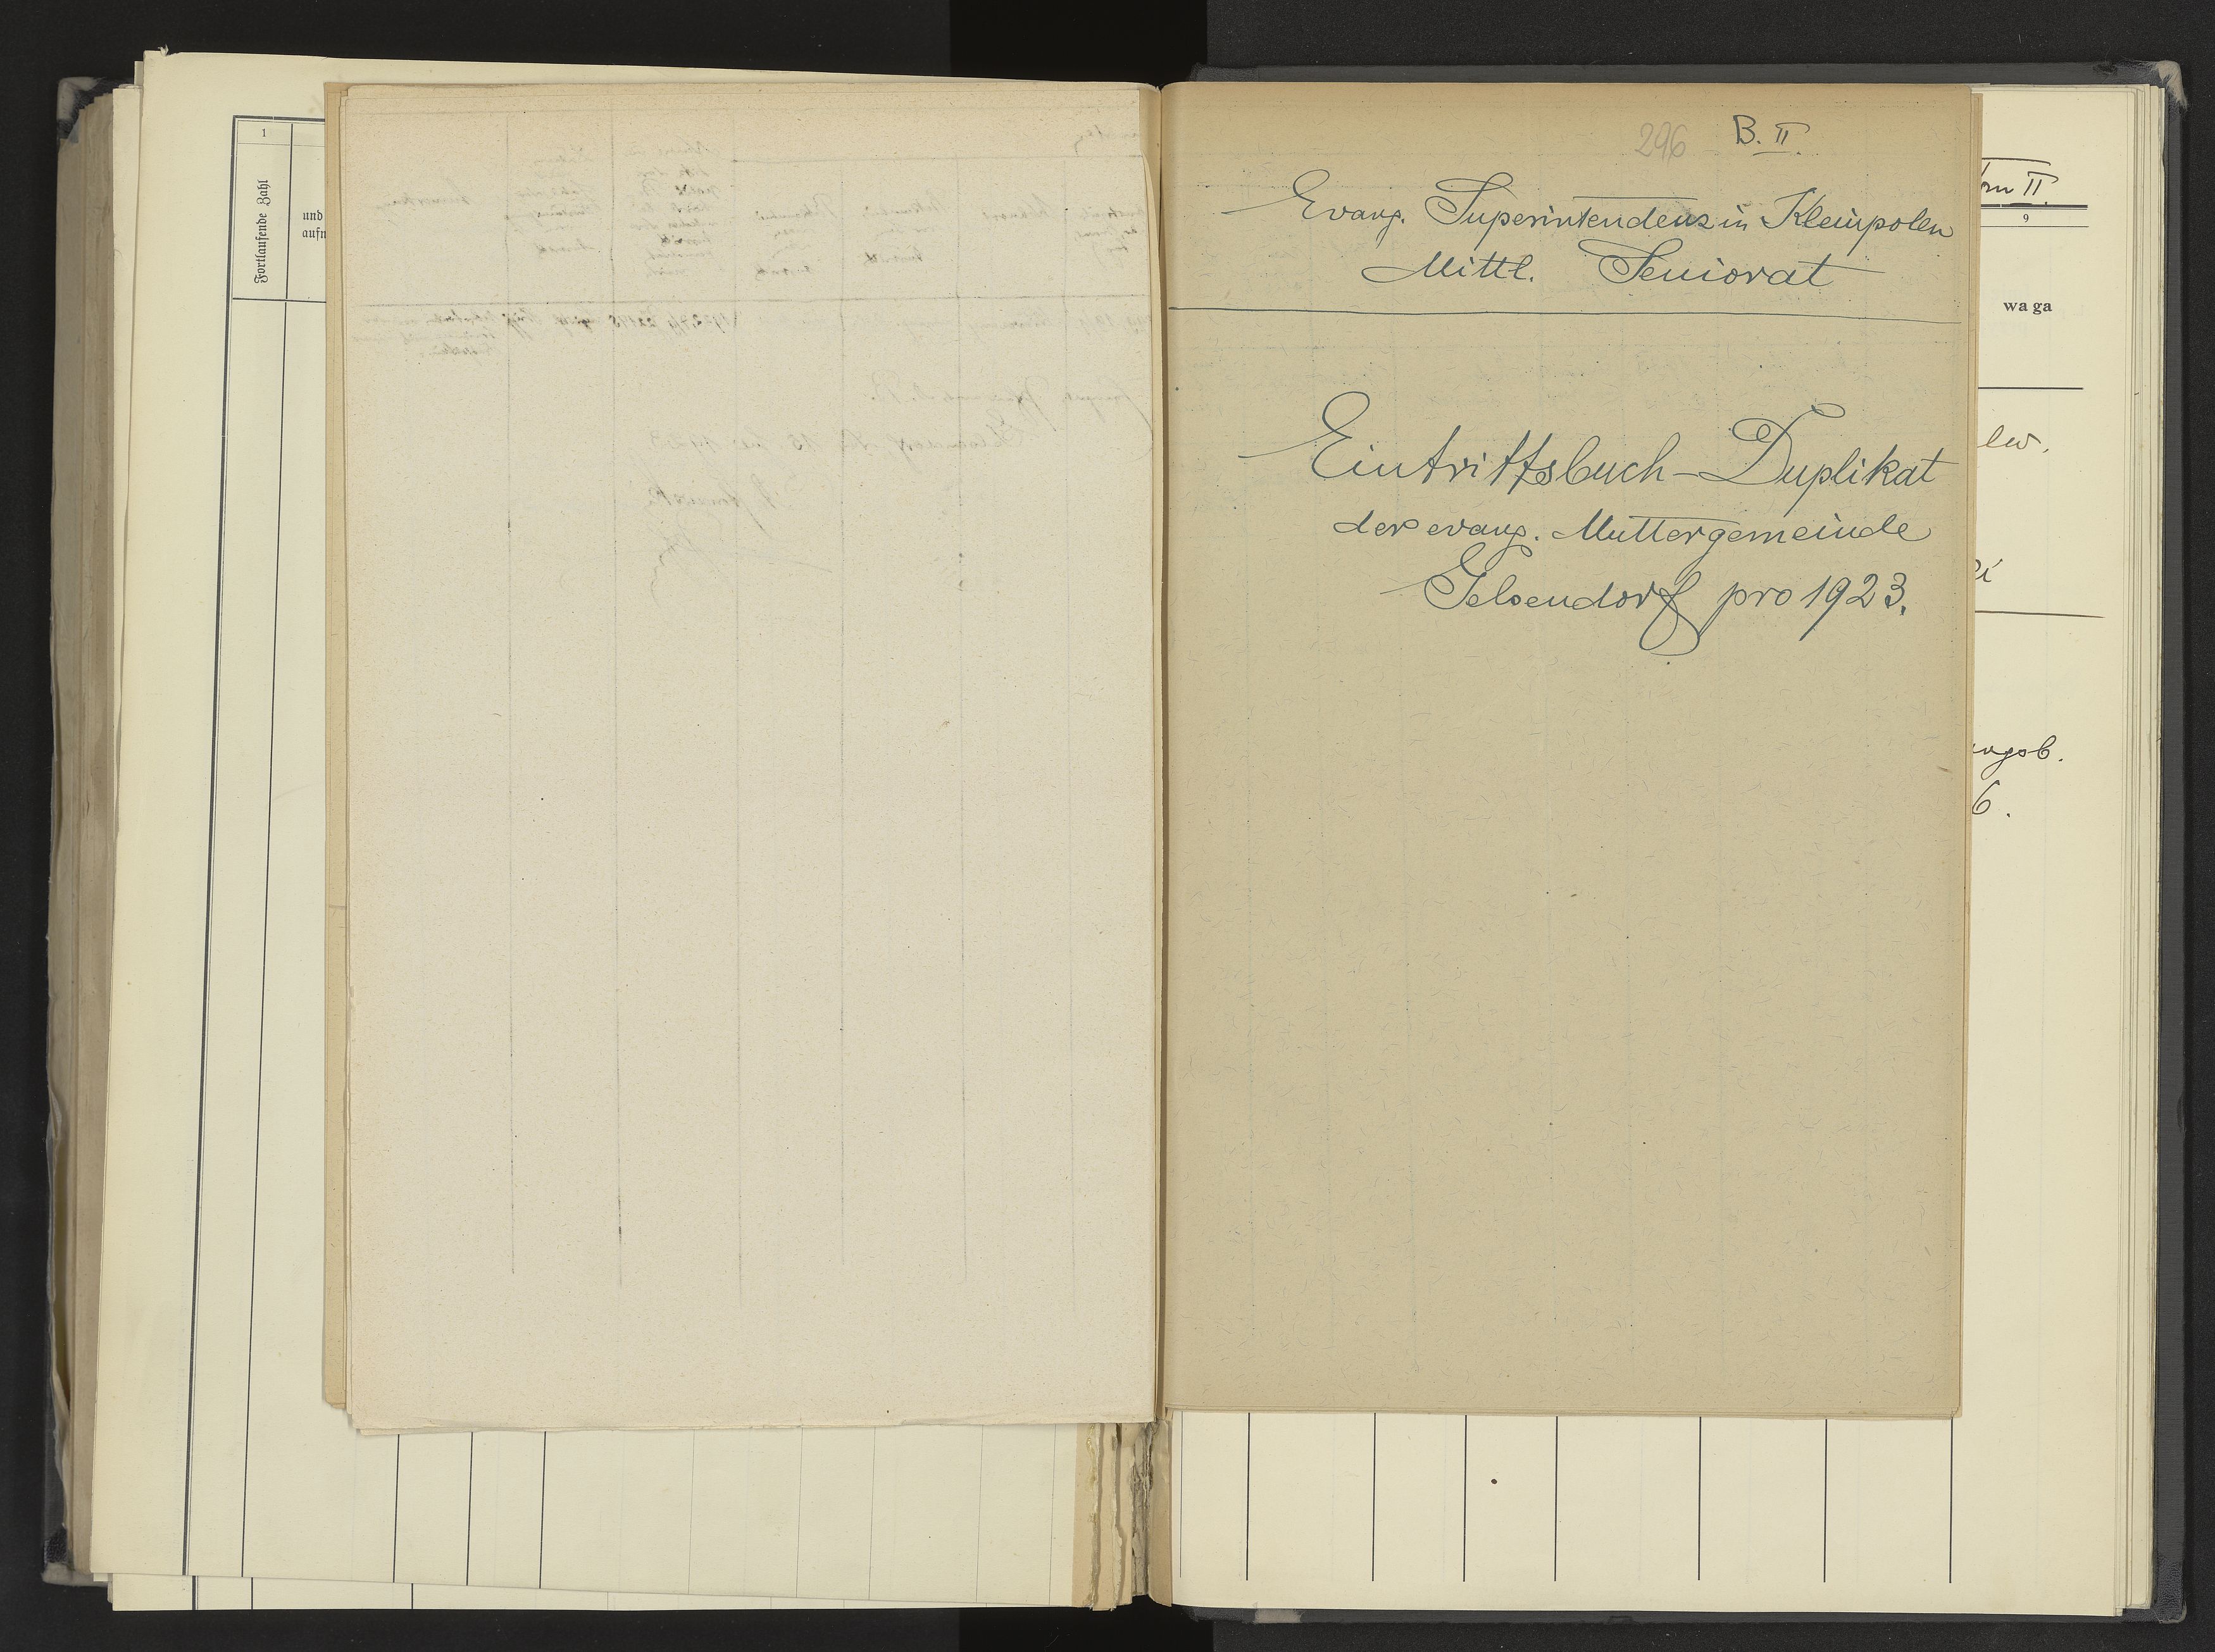 1
Fortlaufende Zahl
und
aufn
296 B. II.
Evang. Superintendenz in Kleinpolen
Mittl. Seniorat
Eintrittsbuch-Duplikat
der evang. Muttergemeinde
Gelsendorf pro 1923.
II.
9
waga
lew.
6.